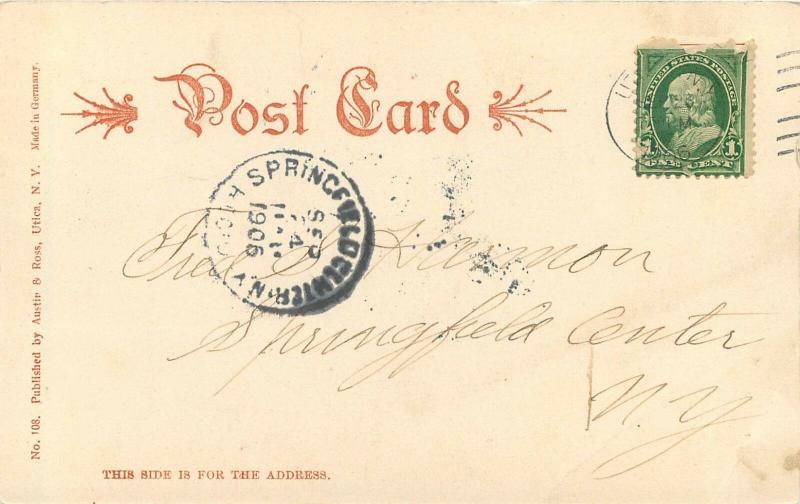 Post Card
UNITED STATES POSTAGE
1 1
ONE CENT
SPRINGFIELD CENTER N.Y.
SEP
1906
Fred Harmon
Springfield Center
N.Y.
THIS SIDE IS FOR THE ADDRESS.
No. 108. Published by Austin & Ross, Utica, N. Y. Made in Germany.